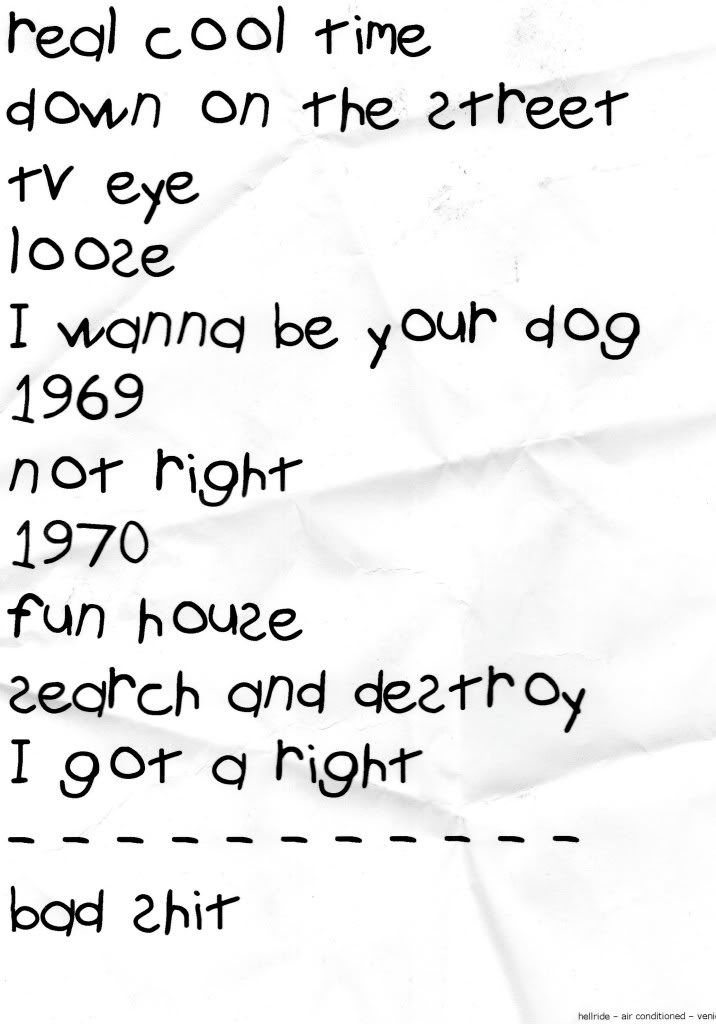 real cool time
down on the street
tv eye
loose
I wanna be your dog
1969
not right
1970
fun house
search and destroy
I got a right
- - - - - - - - - - -
bad shit
hellride – air conditioned – veni